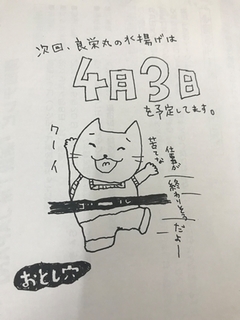 次回、良栄丸の水揚げは
4月3日
を予定してます。
ワーイ
苦手な
仕事が
終わりそうだよー
ゴール
おとし穴